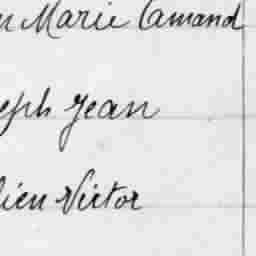 n Marie Camand
eph Jean
lien Victor